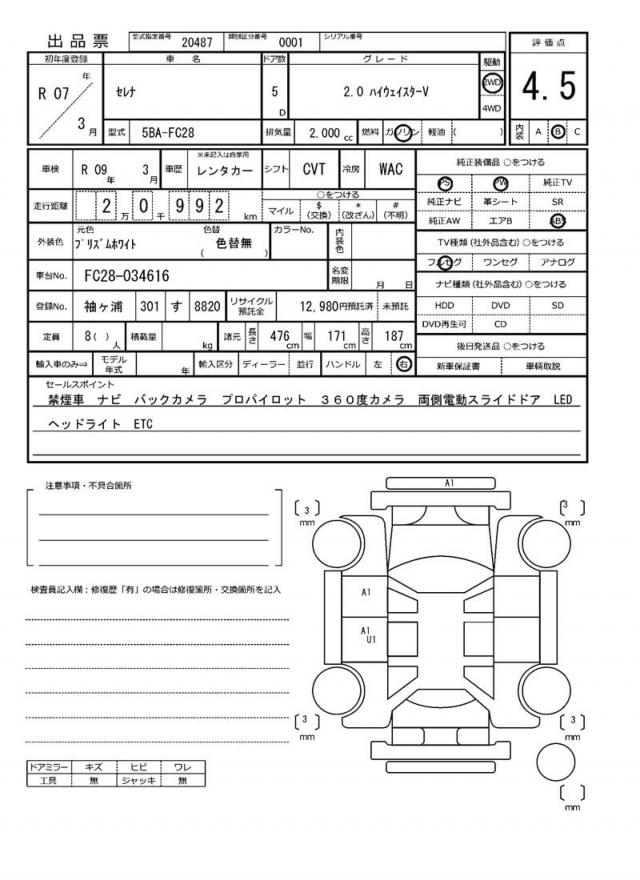 出品票 型式指定番号 20487 類別区分番号 0001 シリアル番号
評価点
4.5
内装 A B C
初年度登録 車名 ドア数 グレード 駆動
R 07 年 3 月 セレナ 5 D 2.0 ハイウェイスターV 2WD 4WD
型式 5BA-FC28 排気量 2,000 cc 燃料 ガソリン 軽油 ( )
車検 R 09 年 3 月 車歴 ※未記入は自家用 レンタカー シフト CVT 冷房 WAC
走行距離 2 万 0 千 9 9 2 km ○をつける
マイル $ (交換) * (改ざん) # (不明)
外装色 元色 プリズムホワイト 色替 ( 色替無 ) カラーNo. 内装色
車台No. FC28-034616 名変期限 月 日
登録No. 袖ヶ浦 301 す 8820 リサイクル預託金 12,980円預託済 未預託
定員 8( ) 人 積載量 kg 諸元 長さ 476 cm 幅 171 cm 高さ 187 cm
輸入車のみ⇒ モデル年式 年 輸入区分 ディーラー 並行 ハンドル 左 右
純正装備品 ○をつける
PS PW 純正TV
純正ナビ 革シート SR
純正AW エアB ABS
TV種類(社外品含む) ○をつける
フルセグ ワンセグ アナログ
ナビ種類(社外品含む) ○をつける
HDD DVD SD
DVD再生可 CD
後日発送品 ○をつける
新車保証書 車輌取説
セールスポイント
禁煙車 ナビ バックカメラ プロパイロット 360度カメラ 両側電動スライドドア LED
ヘッドライト ETC
注意事項・不具合箇所
検査員記入欄:修復歴「有」の場合は修復箇所・交換箇所を記入
ドアミラー キズ ヒビ ワレ
工具 無 ジャッキ 無
A1
[ 3 ] mm
[ 3 ] mm
A1
A1
U1
[ 3 ] mm
[ 3 ] mm
[ ] mm